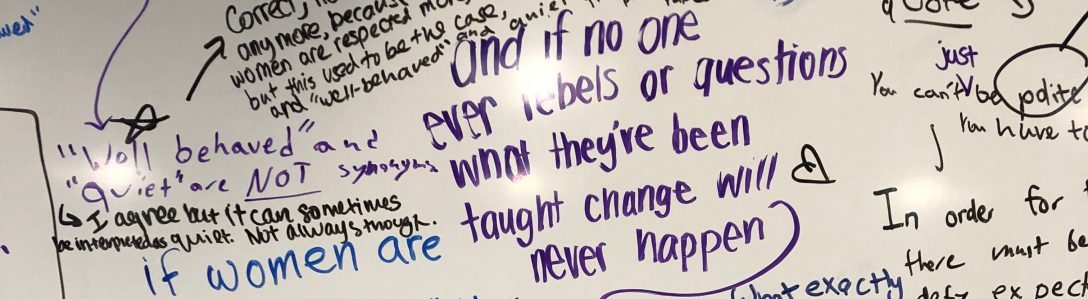 Correct,
anymore, because
women are respected more
but this used to be the case,
and "well-behaved" and quiet
and if no one
ever rebels or questions
what they're been
taught change will
never happen
"Well behaved" and
"quiet" are NOT synonyms
↳ I agree but it can sometimes
be interpreted as quiet. Not always though.
if women are
quote
just
You can't be polite
You have
In order for
there must be
exactly